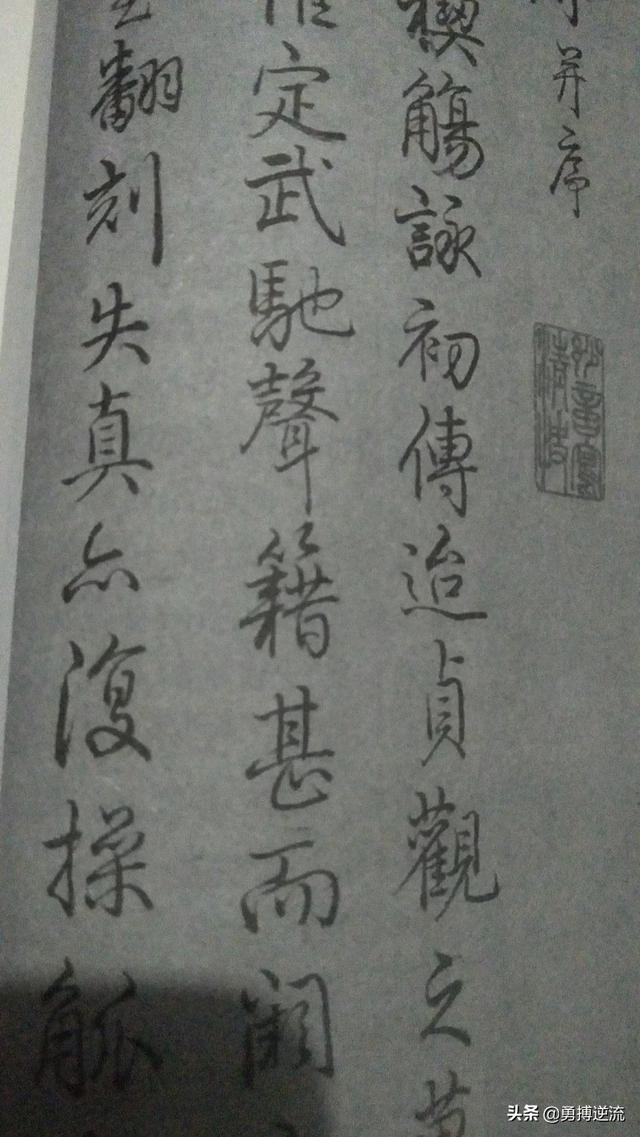 并序
禊觴詠初傳迨貞觀之
定武馳聲籍甚而
翻刻失真亦復操觚
头条 @勇搏逆流